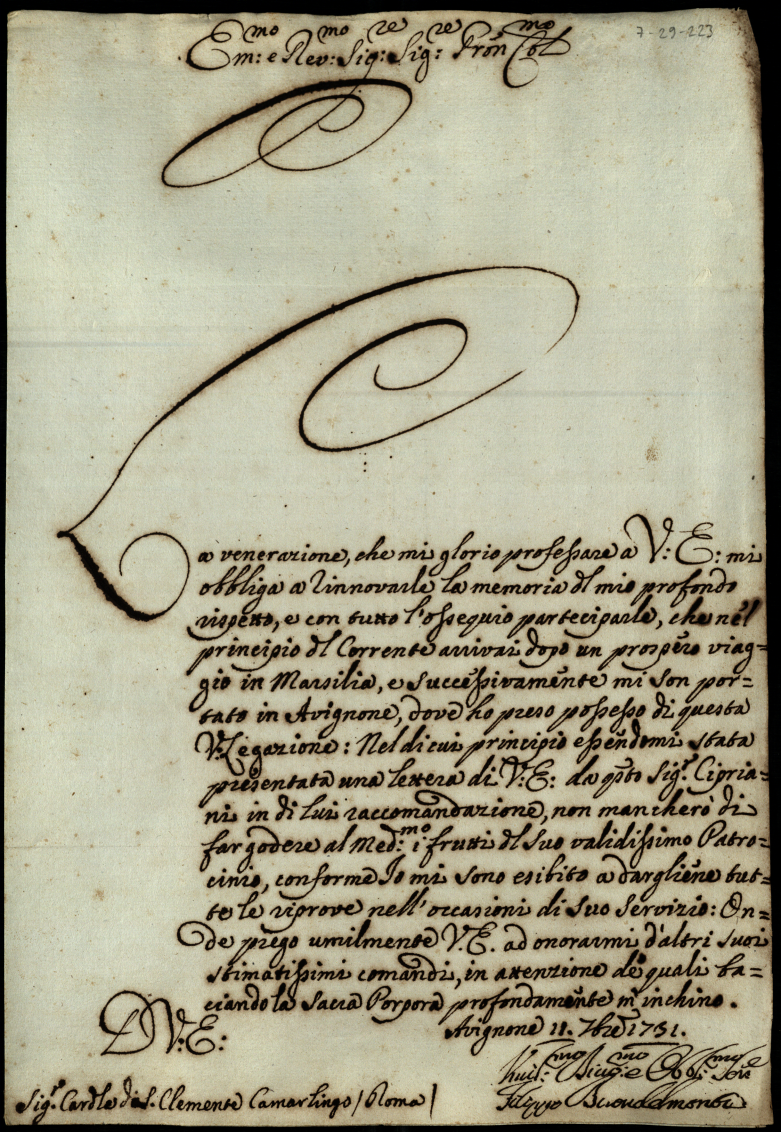 7-29-223
Em:mo e Rev:mo Sig:re Sig:re Pron Colmo
La venerazione, che mi glorio professare a V: E: mi
obbliga a rinnovarle la memoria dl mio profondo
rispetto, e con tutto l'ossequio parteciparle, che nel
principio dl Corrente arrivai dopo un prospero viag=
gio in Marsilia, e successivamente mi son por=
tato in Avignone, dove ho preso possesso di questa
V.Legazione: Nel di cui principio essendomi stata
presentata una lettera di V: E: da qsto Sig.r Cipria=
ni in di lui raccomandazione, non mancherò di
far godere al Med:mo i frutti dl suo validissimo Patro=
cinio, conforme Io mi sono esibito a dargliene tut=
te le riprove nell'occasioni di suo servizio: On=
de prego umilmente V.E. ad onorarmi d'altri suoi
stimatissimi comandi, in attenzione de quali ba=
ciando la Sacra Porpora profondamente m'inchino.
D V: E:
Avignone 11. 7bre 1731.
Sig.r Cardle di S. Clemente Camarlingo / Roma /
Filippo Buondelmonti